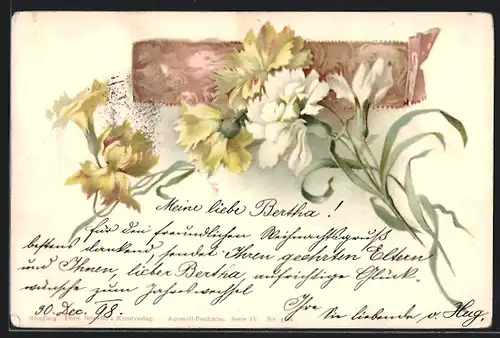 Meine liebe Bertha!
Für den freundlichen Weihnachtsgruß
bestens dankend, sendet Ihren geehrten Eltern
und Ihnen, liebe Bertha, aufrichtige Glück-
wünsche zum Jahreswechsel
30. Dec. 98.
Ihre
Sie liebende v. Hug
Nürnberg. Theo. Kunstverlag. Aquarell-Postkarte. Serie IV. No.